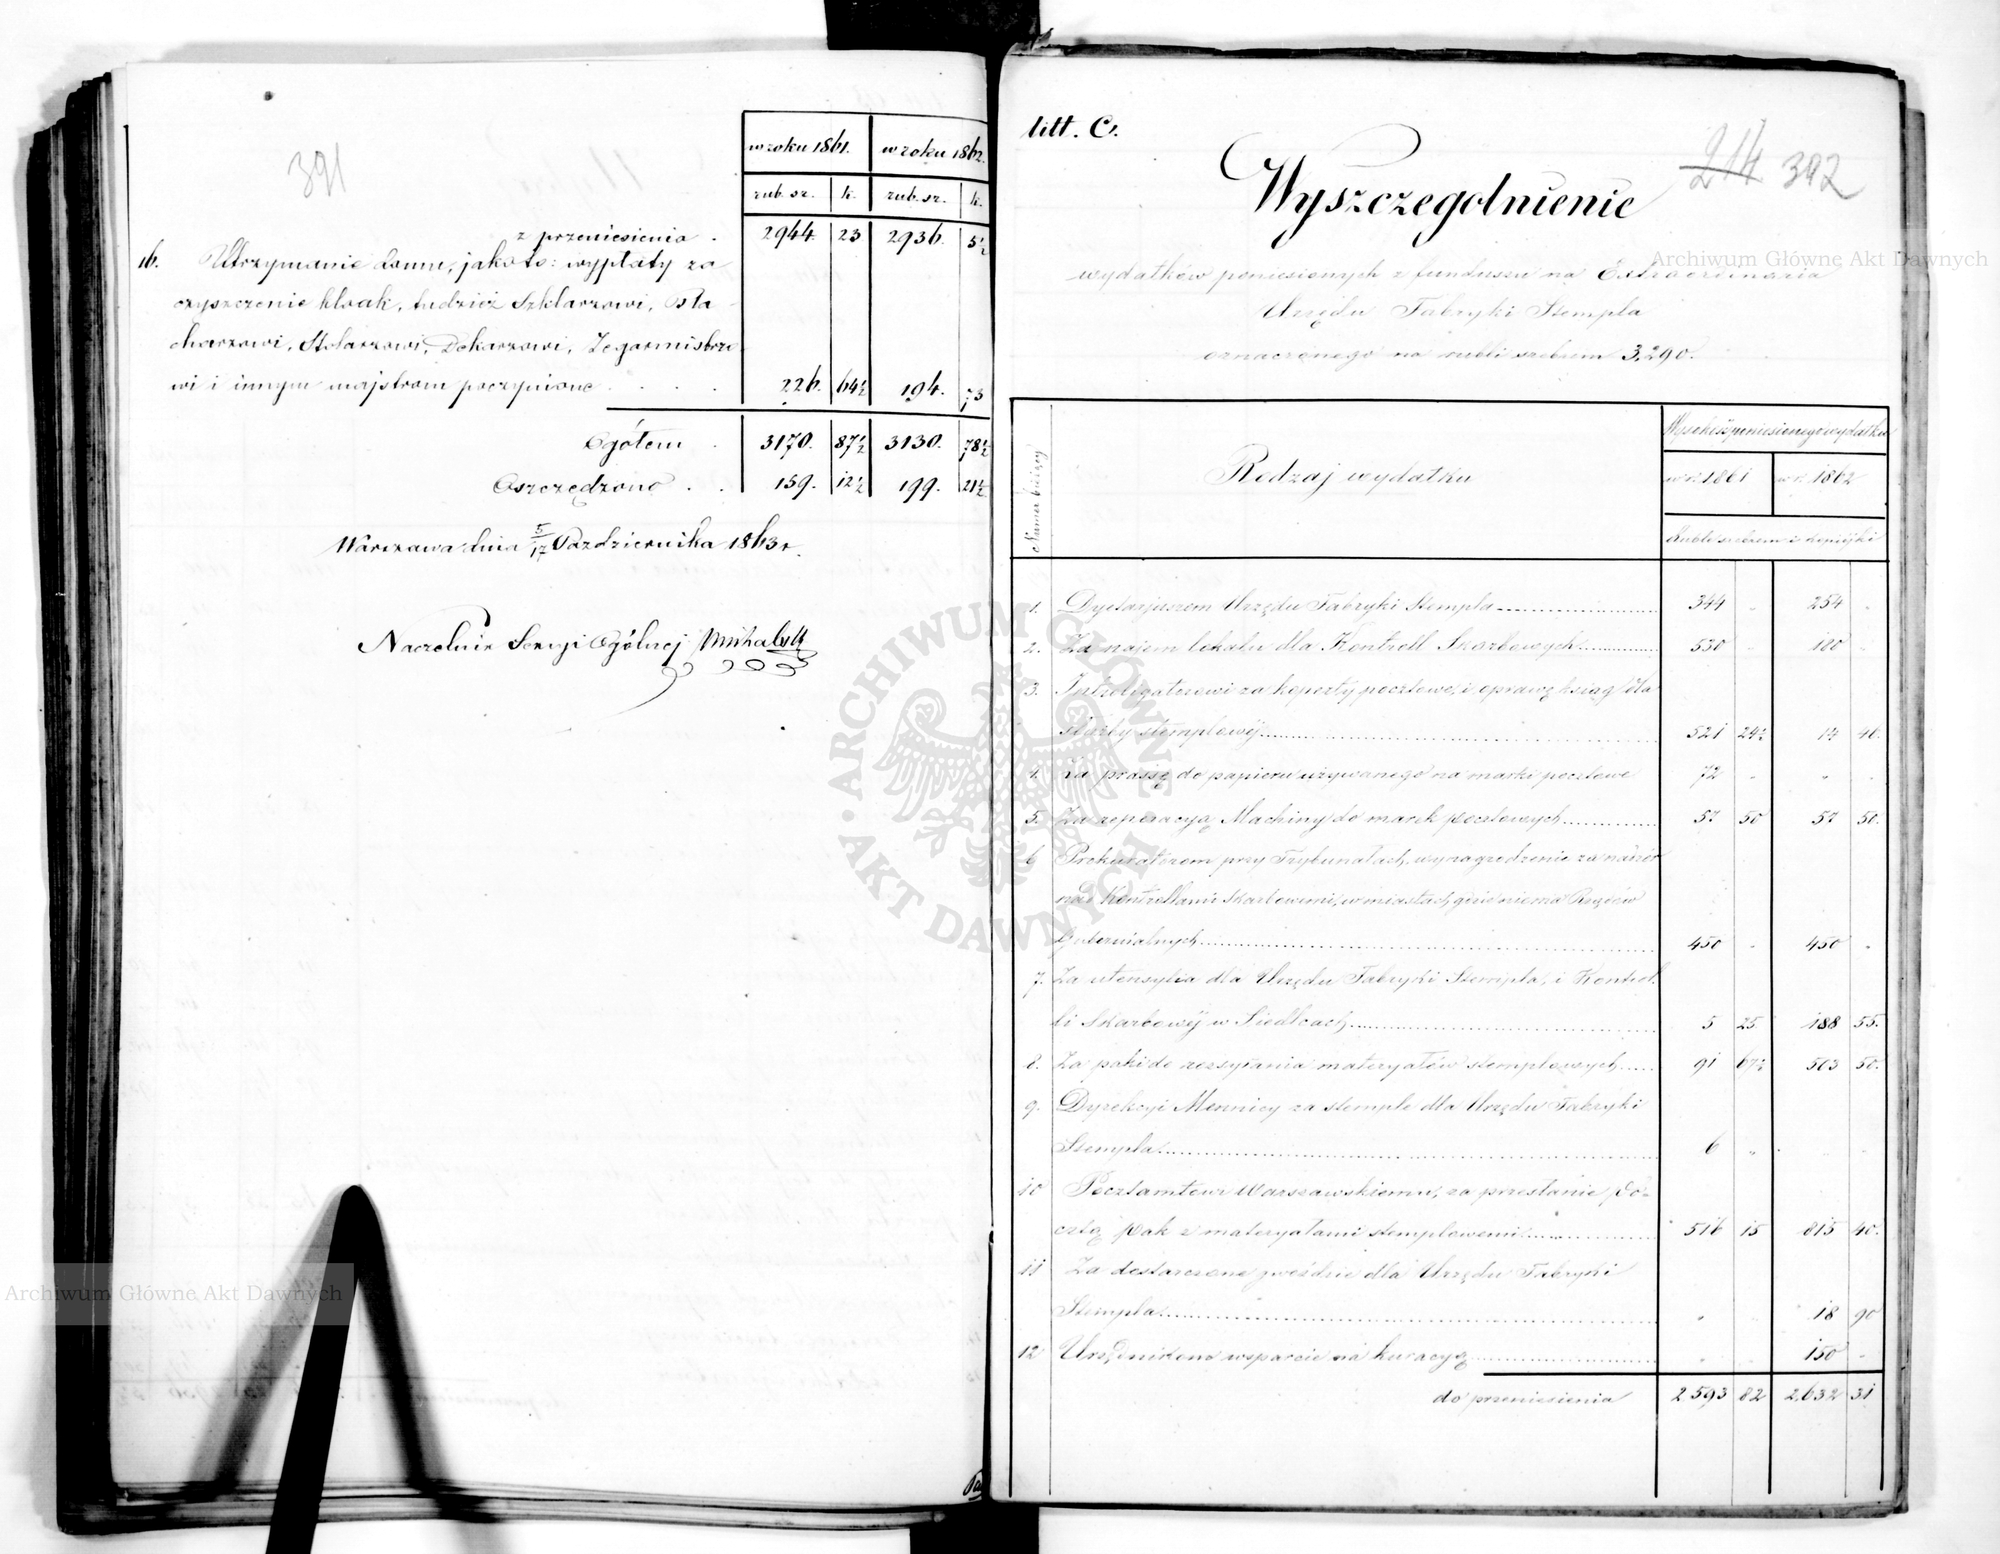 391
w roku 1861. w roku 1862.
rub. sr. k. rub. sr. k.
z przeniesienia . 2944. 23 2936. 5½
16. Utrzymanie domu, jakoto: wypłaty za
czyszczenie kloak, tudzież Szklarzowi, Bla-
charzowi, Stolarzowi, Dekarzowi, Zegarmistrzo-
wi i innym majstrom poczynione . . . . 226. 64½ 194. 73
Ogółem . 3170. 87½ 3130. 78½
Oszczędzono . . 159. 12½ 199. 21½
Warszawa dnia 5/17 Października 1863 r.
Naczelnik Sekcyi Ogólnej
litt. C.
214 392
Wyszczegolnienie
wydatków poniesionych z funduszu na Extraordinaria
Urzędu Fabryki Stempla
oznaczonego na rubli srebrem 3,290.
Numer bieżący
Rodzaj wydatku
Wysokość poniesionego wydatku
w r. 1861 w r. 1862
Rubli srebrem i kopiejki
1. Dyetarjuszom Urzędu Fabryki Stempla 344 " 254 "
2. Za najem lokalu dla Kontroll Skarbowych 530 " 180 "
3. Introligatorowi za koperty pocztowe, i oprawę ksiąg dla
służby stemplowéj 521 24½ 14 46.
4. Za prassę do papieru używanego na marki pocztowe 72 " " "
5. Za reperacyę Machiny do marek pocztowych 57 50 57 50.
6 Prokuratorom przy Trybunałach, wynagrodzenie za nadzór
nad Kontrollami Skarbowemi, w miastach gdzie niema Rządów
Gubernialnych 450 " 450 "
7. Za utensylia dla Urzędu Fabryki Stempla, i Kontrol-
li Skarbowéj w Siedlcach 5 25 188 55.
8. Za paki do rozsyłania materyałów stemplowych 91 67½ 503 50.
9. Dyrekcyi Mennicy za stemple dla Urzędu Fabryki
Stempla 6 " " "
10 Pocztamtowi Warszawskiemu, za przesłanie po-
cztą pak z materyałami stemplowemi 516 15 815 40.
11 Za dostarczone gwoździe dla Urzędu Fabryki
Stempla " " 18 90
12 Urzędnikom wsparcie na kuracyę " " 150 "
do przeniesienia 2593 82 2,632 31
Archiwum Główne Akt Dawnych
Archiwum Główne Akt Dawnych
Archiwum Główne Akt Dawnych
ARCHIWUM GŁÓWNE
AKT DAWNYCH